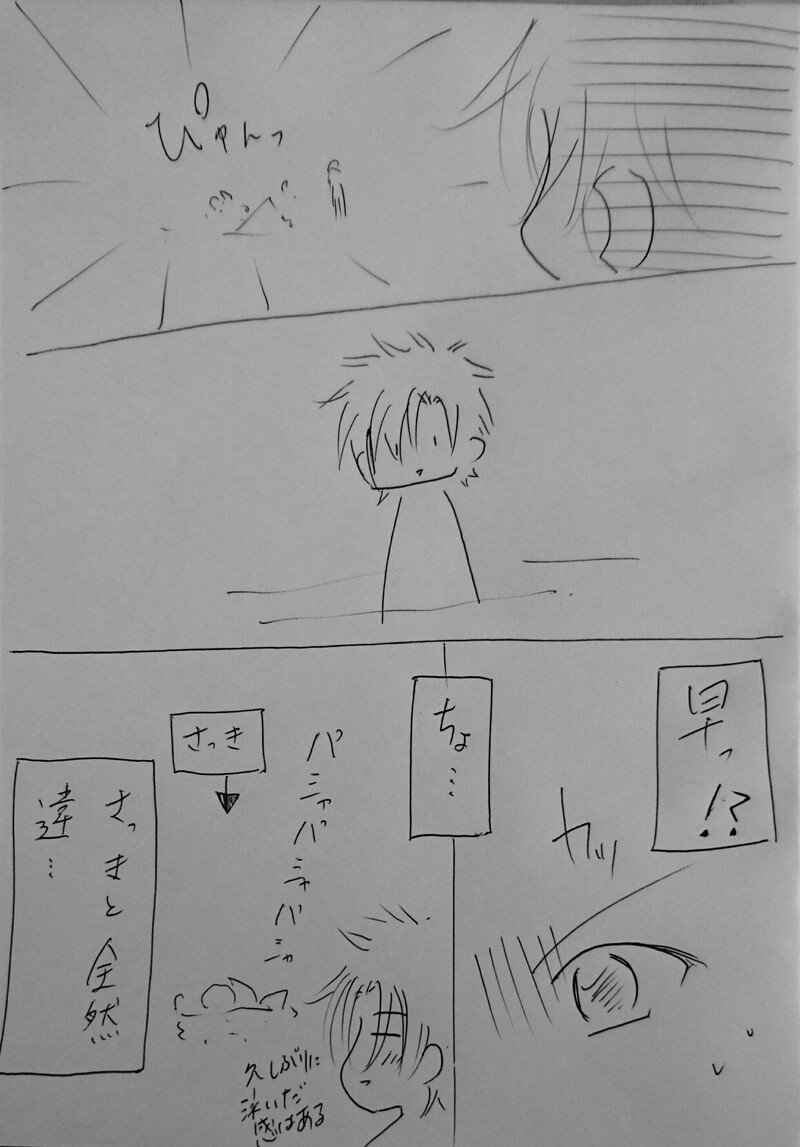 ぴゅんっ
早っ!?
カッ
ちょ…
パシャパシャパシャ
さっき
久しぶりに
泳いだ
感はある
さっまと全然
違…